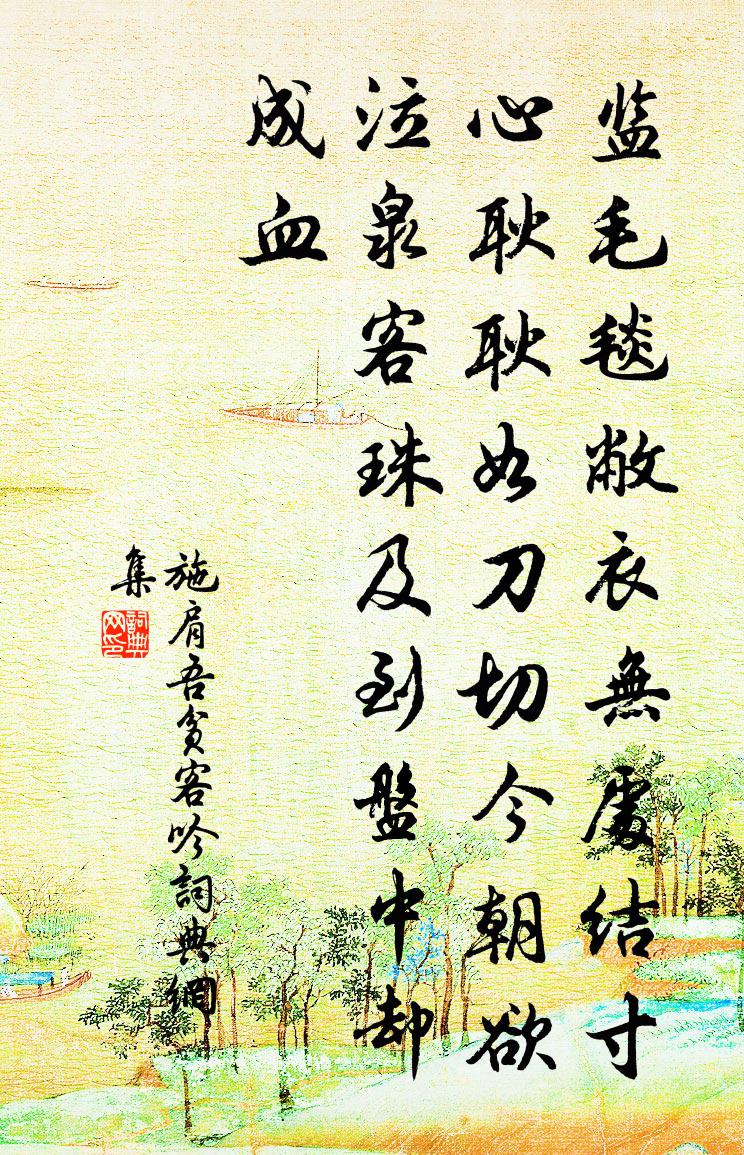 监毛毯敝衣無處结寸
心耿耿如刀切今朝欲
泣泉客珠及到盤中却
成血
施肩吾貧客吟詞典網
集
詞典网印